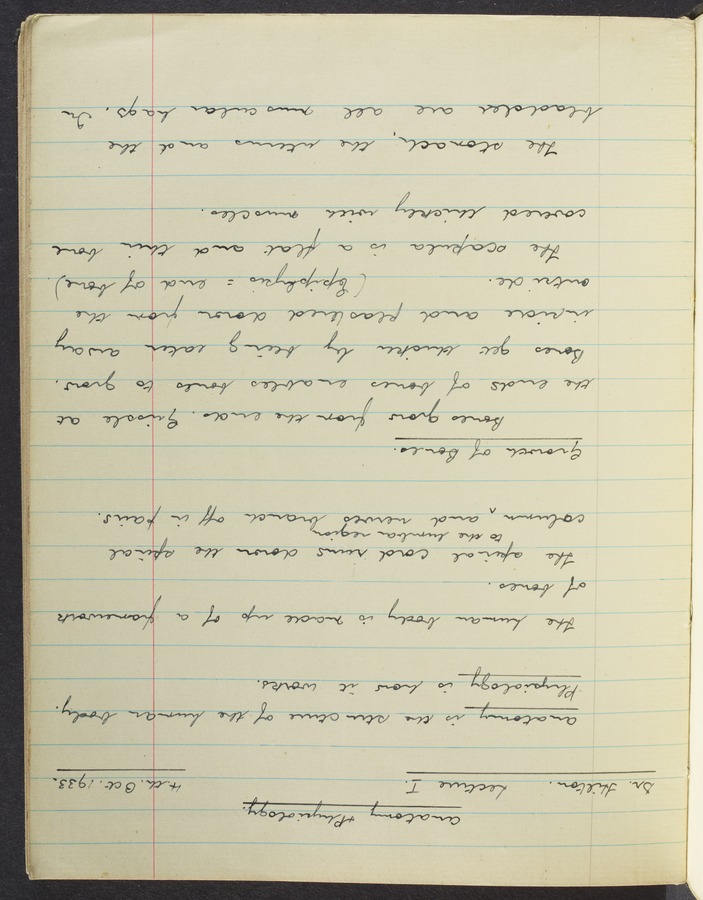 Anatomy + Physiology.
Dr. Hilton. Lecture I. 4.th. Oct. 1933.
Anatomy is the structure of the human body.
Physiology is how it works.
The human body is made up of a framework
of bones.
The spinal cord runs down the spinal
to the lumbar region
column ^ and nerves branch off in pairs.
Growth of Bones.
Bones grow from the ends. Grissle at
the ends of bones enables bones to grow.
Bones get thicker by being eaten away
inside and plastered down from the
outside. (Epiphysis = end of bone).
The scapula is a flat and thin bone
covered thickly with muscles.
The stomach, the uterus and the
bladder are all muscular bags. In